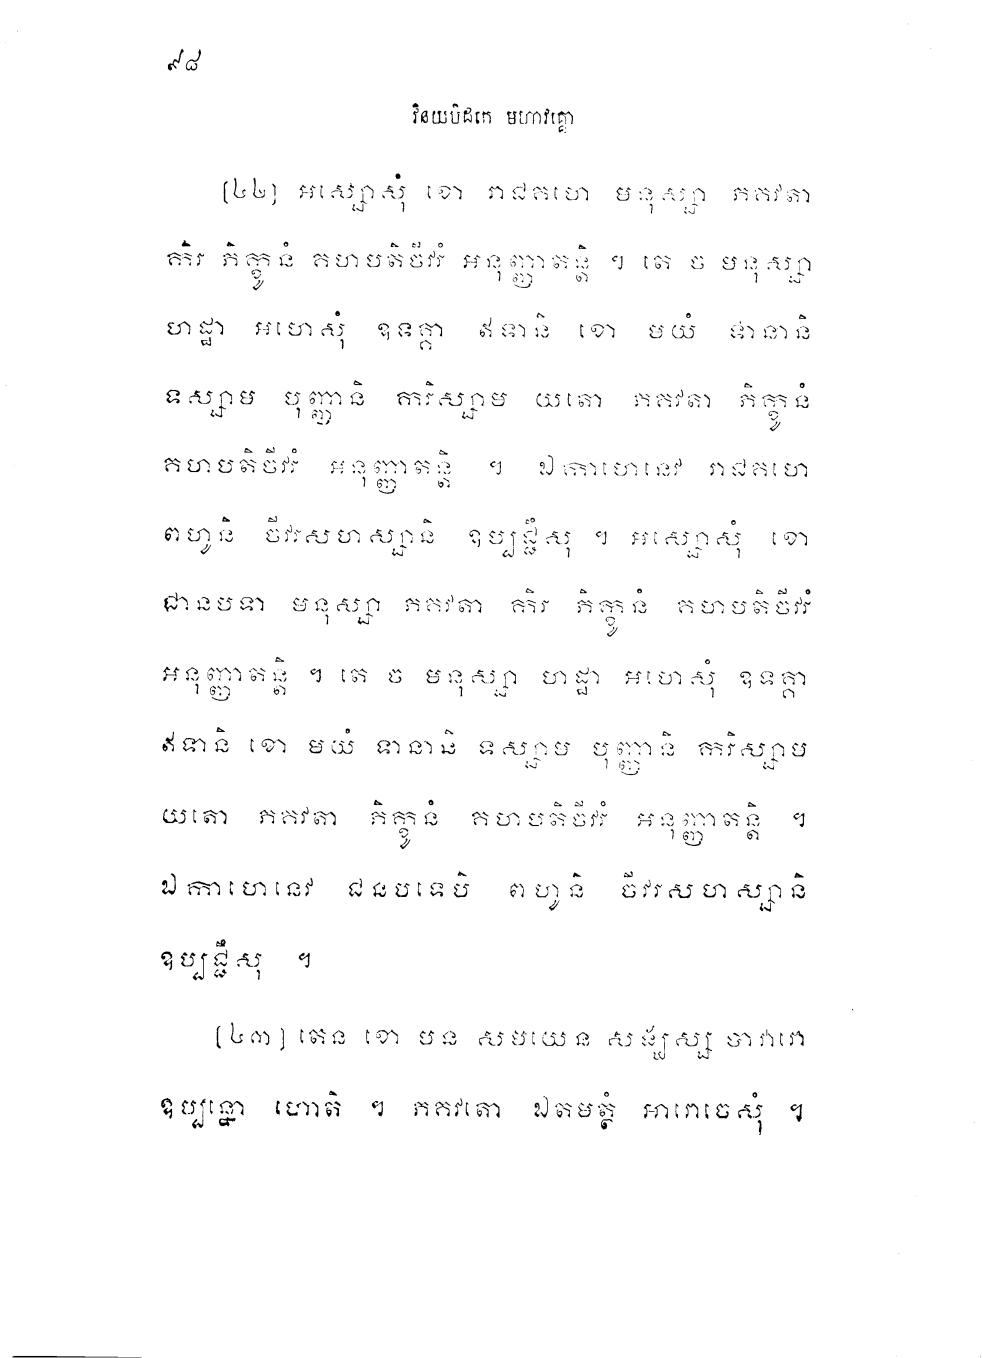 ៩៨
វិនយបិដកេ មហាវគ្គោ
(៤២) អស្សោសុំ ខោ រាជគហេ មនុស្សា ភគវតា
កិរ ភិក្ខូនំ គហបតិចីវរំ អនុញ្ញាតន្តិ ។ តេ ច មនុស្សា
ហដ្ឋា អហេសុំ ឧទគ្គា ឥទានិ ខោ មយំ ទានានិ
ទស្សាម បុញ្ញានិ ករិស្សាម យតោ ភគវតា ភិក្ខូនំ
គហបតិចីវរំ អនុញ្ញាតន្តិ ។ ឯកាហេនេវ រាជគហេ
ពហូនិ ចីវរសហស្សានិ ឧប្បជ្ជឹសុ ។ អស្សោសុំ ខោ
ជានបទា មនុស្សា ភគវតា កិរ ភិក្ខូនំ គហបតិចីវរំ
អនុញ្ញាតន្តិ ។ តេ ច មនុស្សា ហដ្ឋា អហេសុំ ឧទគ្គា
ឥទានិ ខោ មយំ ទានានិ ទស្សាម បុញ្ញានិ ករិស្សាម
យតោ ភគវតា ភិក្ខូនំ គហបតិចីវរំ អនុញ្ញាតន្តិ ។
ឯកាហេនេវ ជនបទេបិ ពហូនិ ចីវរសហស្សានិ
ឧប្បជ្ជឹសុ ។
(៤៣) តេន ខោ បន សមយេន សង្ឃស្ស បាវារោ
ឧប្បន្នោ ហោតិ ។ ភគវតោ ឯតមត្ថំ អារោចេសុំ ។